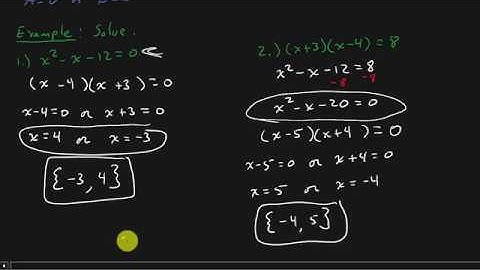 Example: Solve.
1.) x² - x - 12 = 0
(x - 4)(x + 3) = 0
x - 4 = 0 or x + 3 = 0
x = 4 or x = -3
{-3, 4}
2.) (x+3)(x-4) = 8
x² - x - 12 = 8
-8 -8
x² - x - 20 = 0
(x - 5)(x + 4) = 0
x - 5 = 0 or x + 4 = 0
x = 5 or x = -4
{-4, 5}